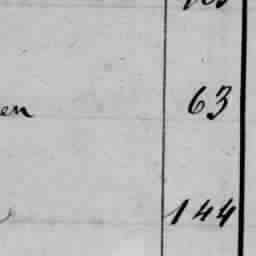 en 63
144